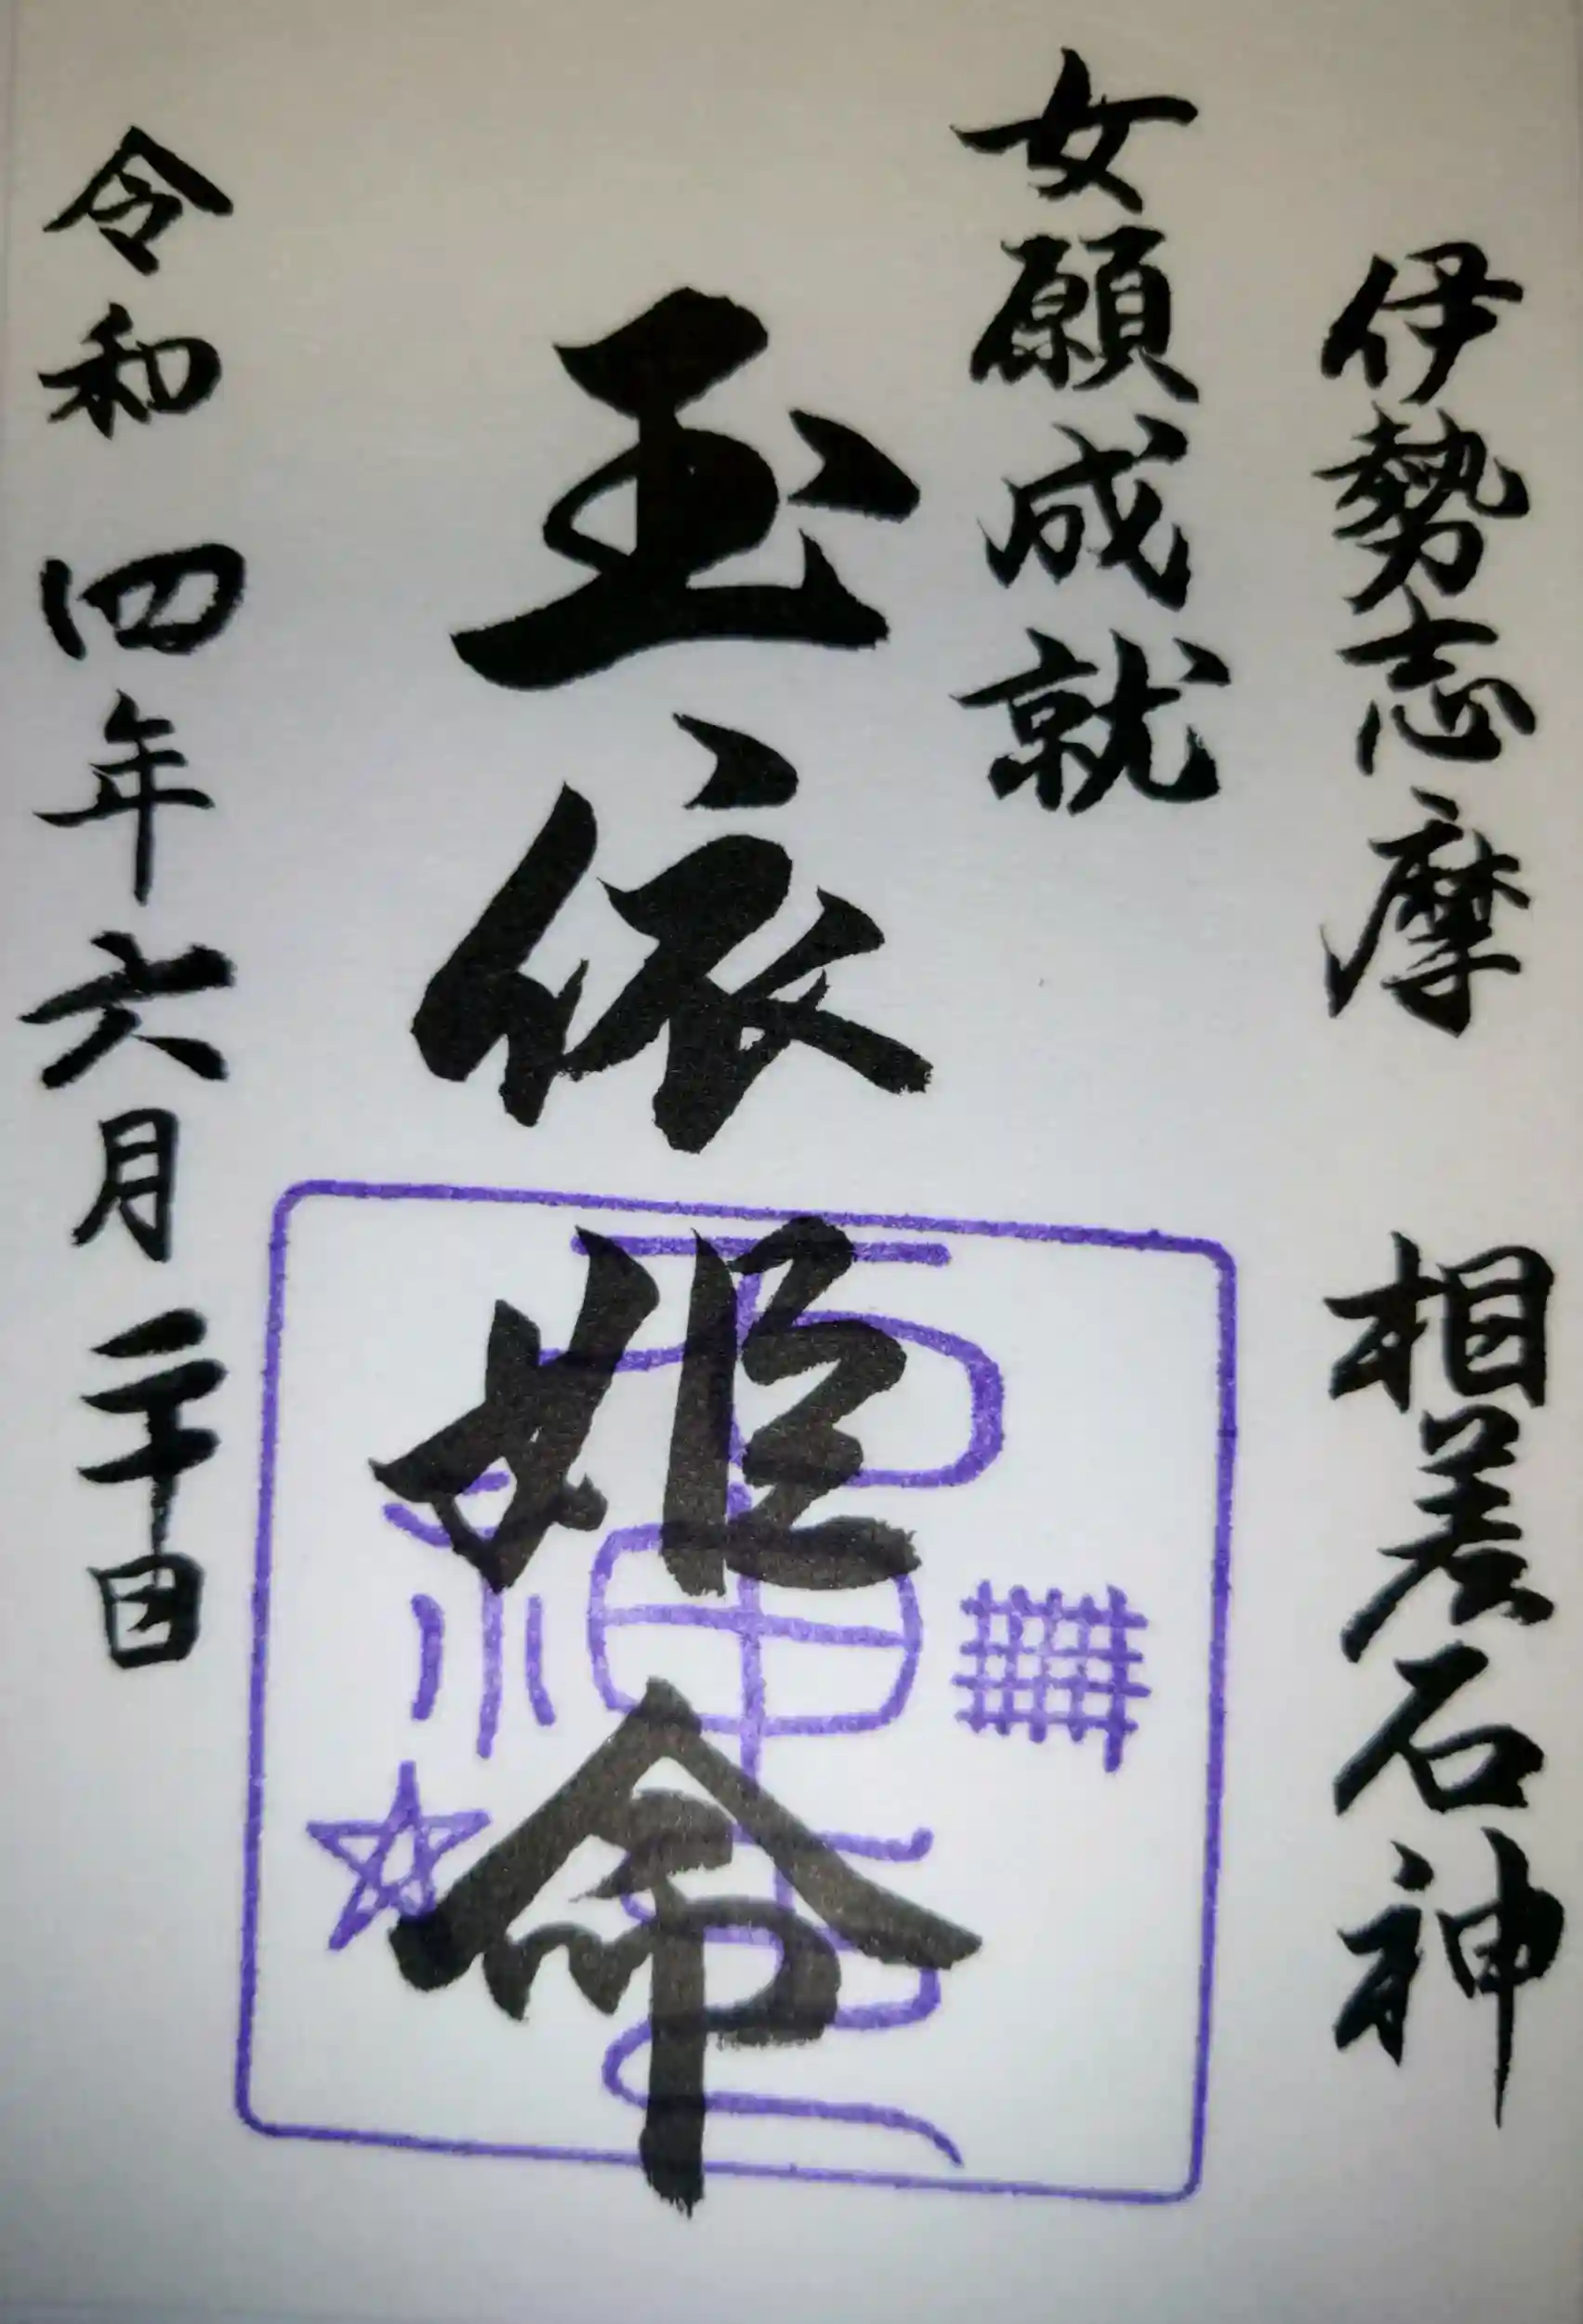 伊勢志摩　相差石神
女願成就
玉依姫命
石神
令和四年六月二十日